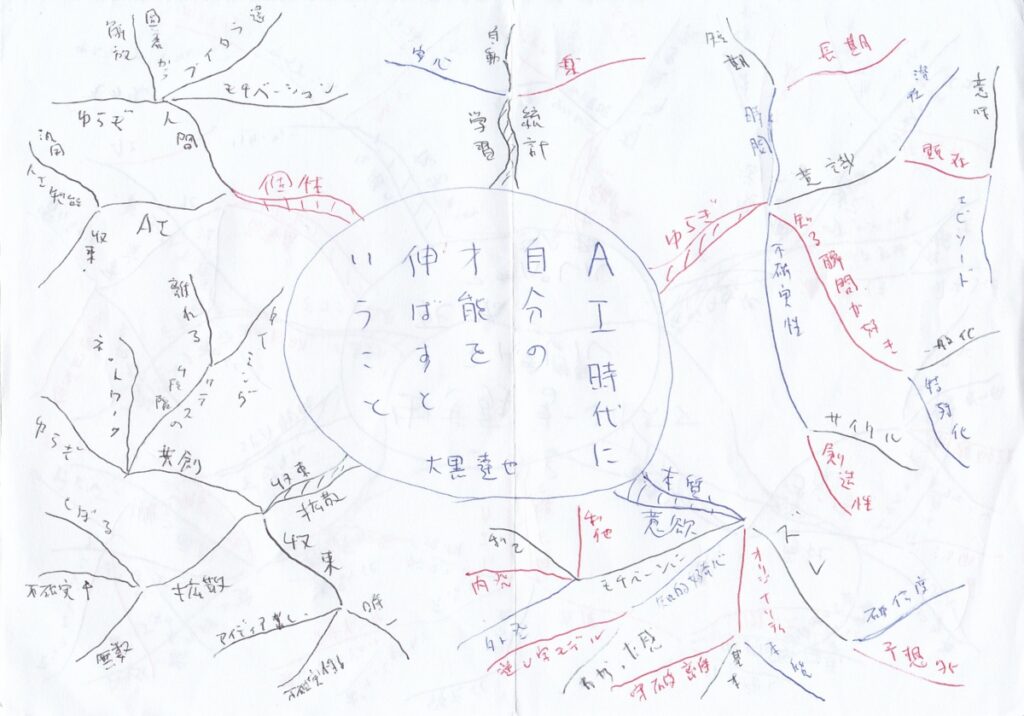 AI時代に
自分の
才能を
伸ばすと
いうこと
大黒達也
統計
学習
自動
安心
ゆらぎ
瞬間
短期
長期
意識
潜在
顕在
意味
エピソード
知る瞬間が好き
一般化
特殊化
不確実性
サイクル
創造性
本質
意欲
ズレ
確信度
予想外
オリジナリティ
本質
守破離
知的好奇心
わかった感
モチベーション
利他
利己
内発
外発
逆U字モデル
収束
拡散
収束
唯一
アイディア乏しい
拡散
しばる
不確定
無数
共創
ゆらぎ
ネットワーク
タイミング
離れる
個体
AI
汎用
人工知能
収束
人間
ゆらぎ
モチベーション